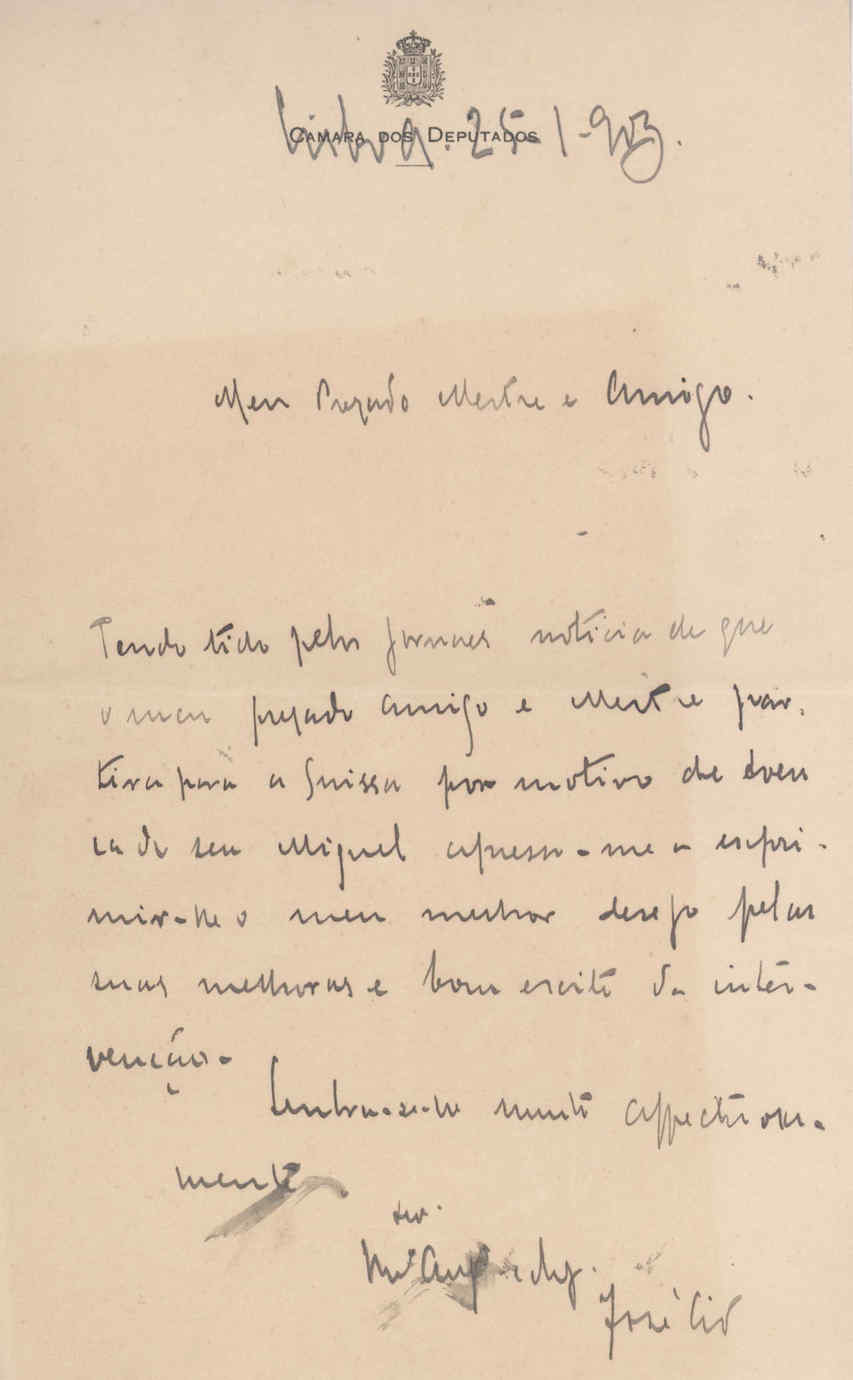 CAMARA DOS DEPUTADOS
Lisboa. 25-1-903.
Meu Prezado Mestre e Amigo.
Tendo tido pelos jornaes noticia de que
o meu prezado amigo e Mestre par-
tira para a Suissa por motivo de doen
ça do seu Miguel apresso-me a expri-
mir-lhe o meu melhor desejo pelas
suas melhoras e bom exito da inter-
venção.
Lembra-se-lhe muito affectuosa-
mente
seu
Mto Amº e
José Cid